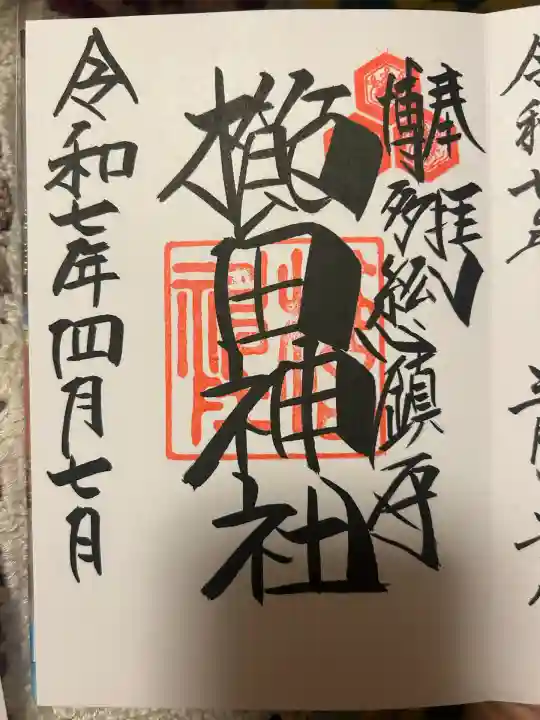 奉拝
博多総鎮守
櫛田神社
令和七年四月七日